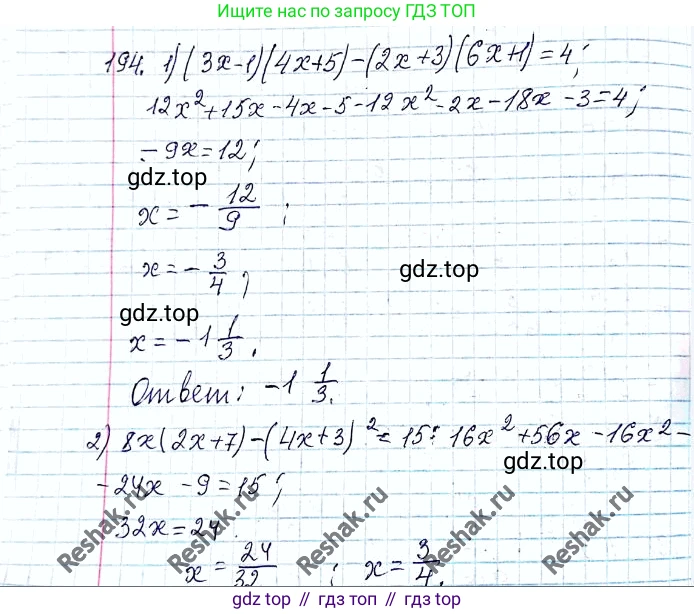 Ищите нас по запросу ГДЗ ТОП
194. 1) (3x-1)(4x+5)-(2x+3)(6x+1)=4;
12x²+15x-4x-5-12x²-2x-18x-3=4;
-9x=12;
gdz.top
x=-12/9;
x=-3/4;
gdz.top
gdz.top
x=-1 1/3.
Ответ: -1 1/3.
2) 8x(2x+7)-(4x+3)²=15: 16x²+56x-16x²-
gdz.top
-24x-9=15;
32x=24
x=24/32; x=3/4.
Reshak.ru
Reshak.ru
Reshak.ru
Reshak.ru
gdz top // гдз топ // gdz.top